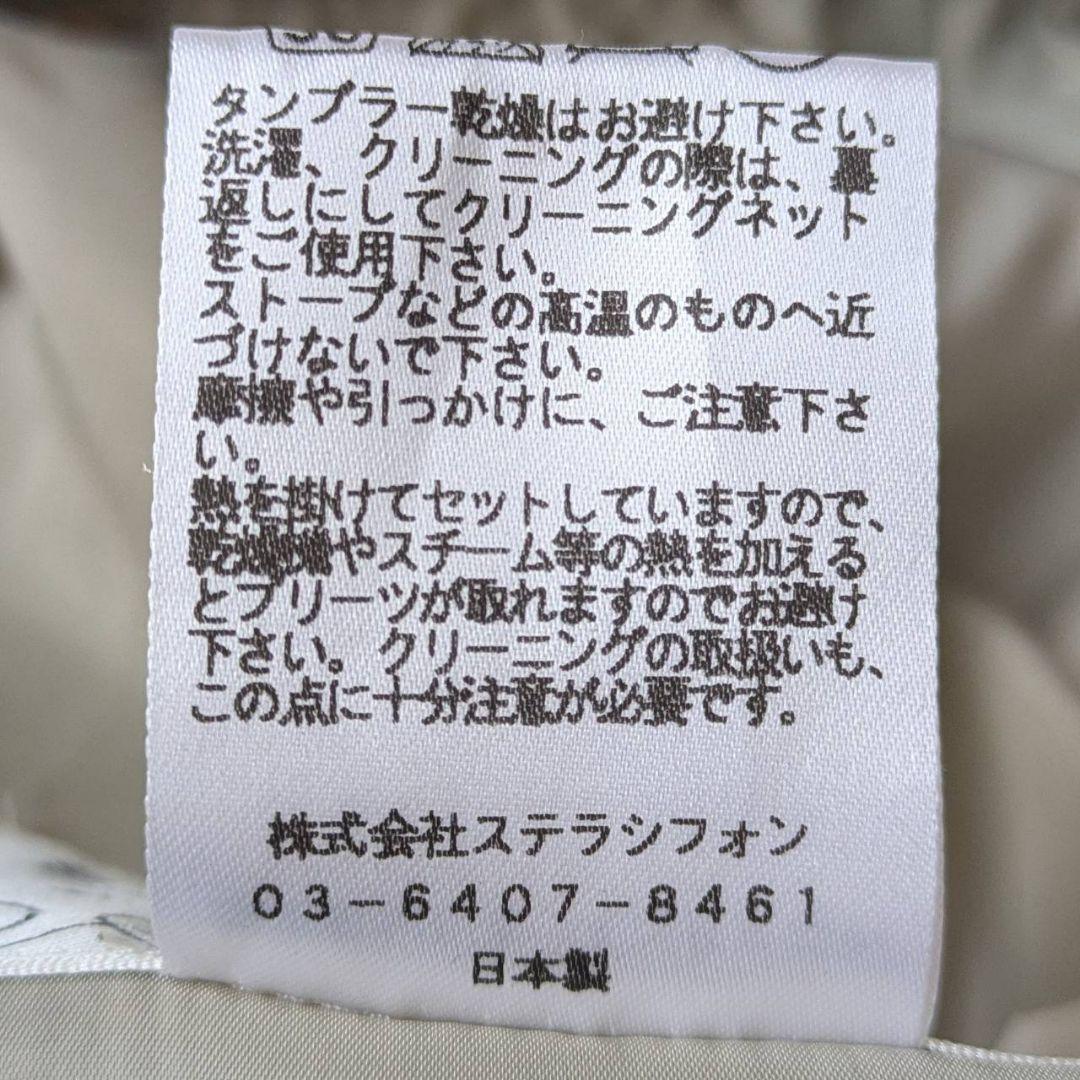 タンブラー乾燥はお避け下さい。
洗濯、クリーニングの際は、裏
返しにしてクリーニングネット
をご使用下さい。
ストーブなどの高温のものへ近
づけないで下さい。
摩擦や引っかけに、ご注意下さ
い。
熱を掛けてセットしていますので、
乾燥機やスチーム等の熱を加える
とプリーツが取れますのでお避け
下さい。クリーニングの取扱いも、
この点に十分注意が必要です。
株式会社ステラシフォン
03-6407-8461
日本製